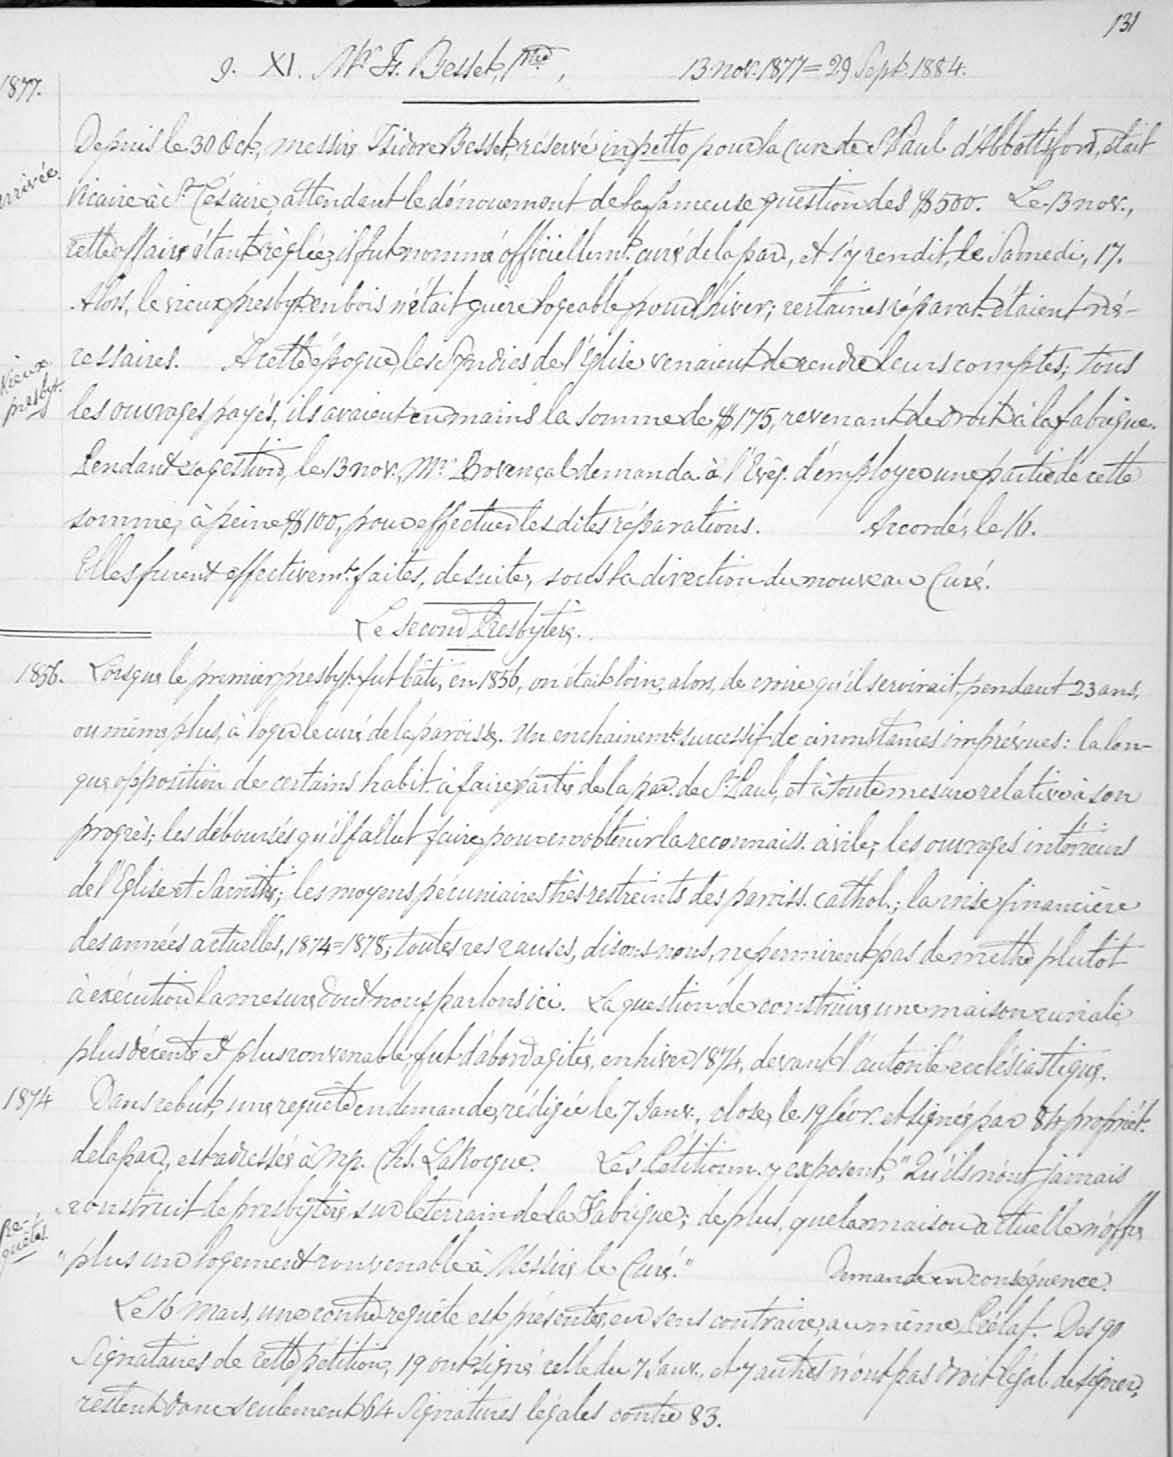 131
9. XI. Mr. Is. Besset, Ptre, 13. nov. 1877 = 29 Sept. 1884.
1877.
Depuis le 30 Oct., messire Isidore Besset, réservé in petto pour la cure de St Paul d'Abbottsford, était
arrivée.
Vicaire à St Césaire, attendant le dénouement de la fameuse question des $500. Le 13 nov.,
cette affaire étant règlée, il fut nommé officiellemt. curé de la par., et s'y rendit, le Samedi, 17.
Alors, le vieux presbyt. en bois n'était guere logeable pour l'hiver; certaines réparat. étaient né-
cessaires. À cette époque, les Syndics de l'Eglise venaient de rendre leurs comptes; tous
Vieux presbyt.
les ouvrages payés, ils avaient en mains la somme de $175, revenant de droit à la fabrique.
Pendant sa gestion, le 13 nov., Mr. Provençal demanda à l'Evêq. d'employer une partie de cette
somme, à peine $100, pour effectuer les dites réparations. Accordé, le 16.
Elles furent effectivemt. faites, de suite, sous la direction du nouveau Curé.
Le second Presbytère.
1856. Lorsque le premier presbyt. fut bâti, en 1856, on était loin, alors, de croire qu'il servirait, pendant 23 ans,
ou même plus, à loger le curé de la paroisse. Un enchainemt. successif de circonstances imprévues: la lon-
gue opposition de certains habit. à faire partie de la par. de St Paul, et à toute mesure relative à son
progrès; les déboursés qu'il fallut faire pour en obtenir la reconnaiss. civile; les ouvrages intérieurs
de l'Eglise et Sacristie; les moyens pécuniaires très restreints des paroiss. cathol.; la crise financière
des années actuelles, 1874=1878; toutes ces causes, disons-nous, ne permirent pas de mettre plutôt
à exécution la mesure dont nous parlons ici. La question de construire une maison curiale
plus décente et plus convenable, fut d'abord agitée, en hiver 1874, devant l'autorité ecclésiastique.
1874 Dans ce but, une requête en demande, rédigée le 7 Janv., close, le 19 févr. et signée par 84 propriét.
de la par., est adressée à Mgr. Chs. LaRocque. Les Petitionn. y exposent, "Qu'ils n'ont jamais
"construit de presbytère sur le terrain de la Fabrique; de plus, que la maison actuelle n'offre
Re-
quêtes
"plus un logement convenable à Messire le Curé." Demande en conséquence.
Le 16 mars, une contre requête est présentée, en sens contraire, au même Prélat. Des 90
Signataires de cette pétition, 19 ont signé celle du 7 Janv., et 7 autres n'ont pas droit légal de signer,
restent donc seulement 64 signatures légales contre 83.